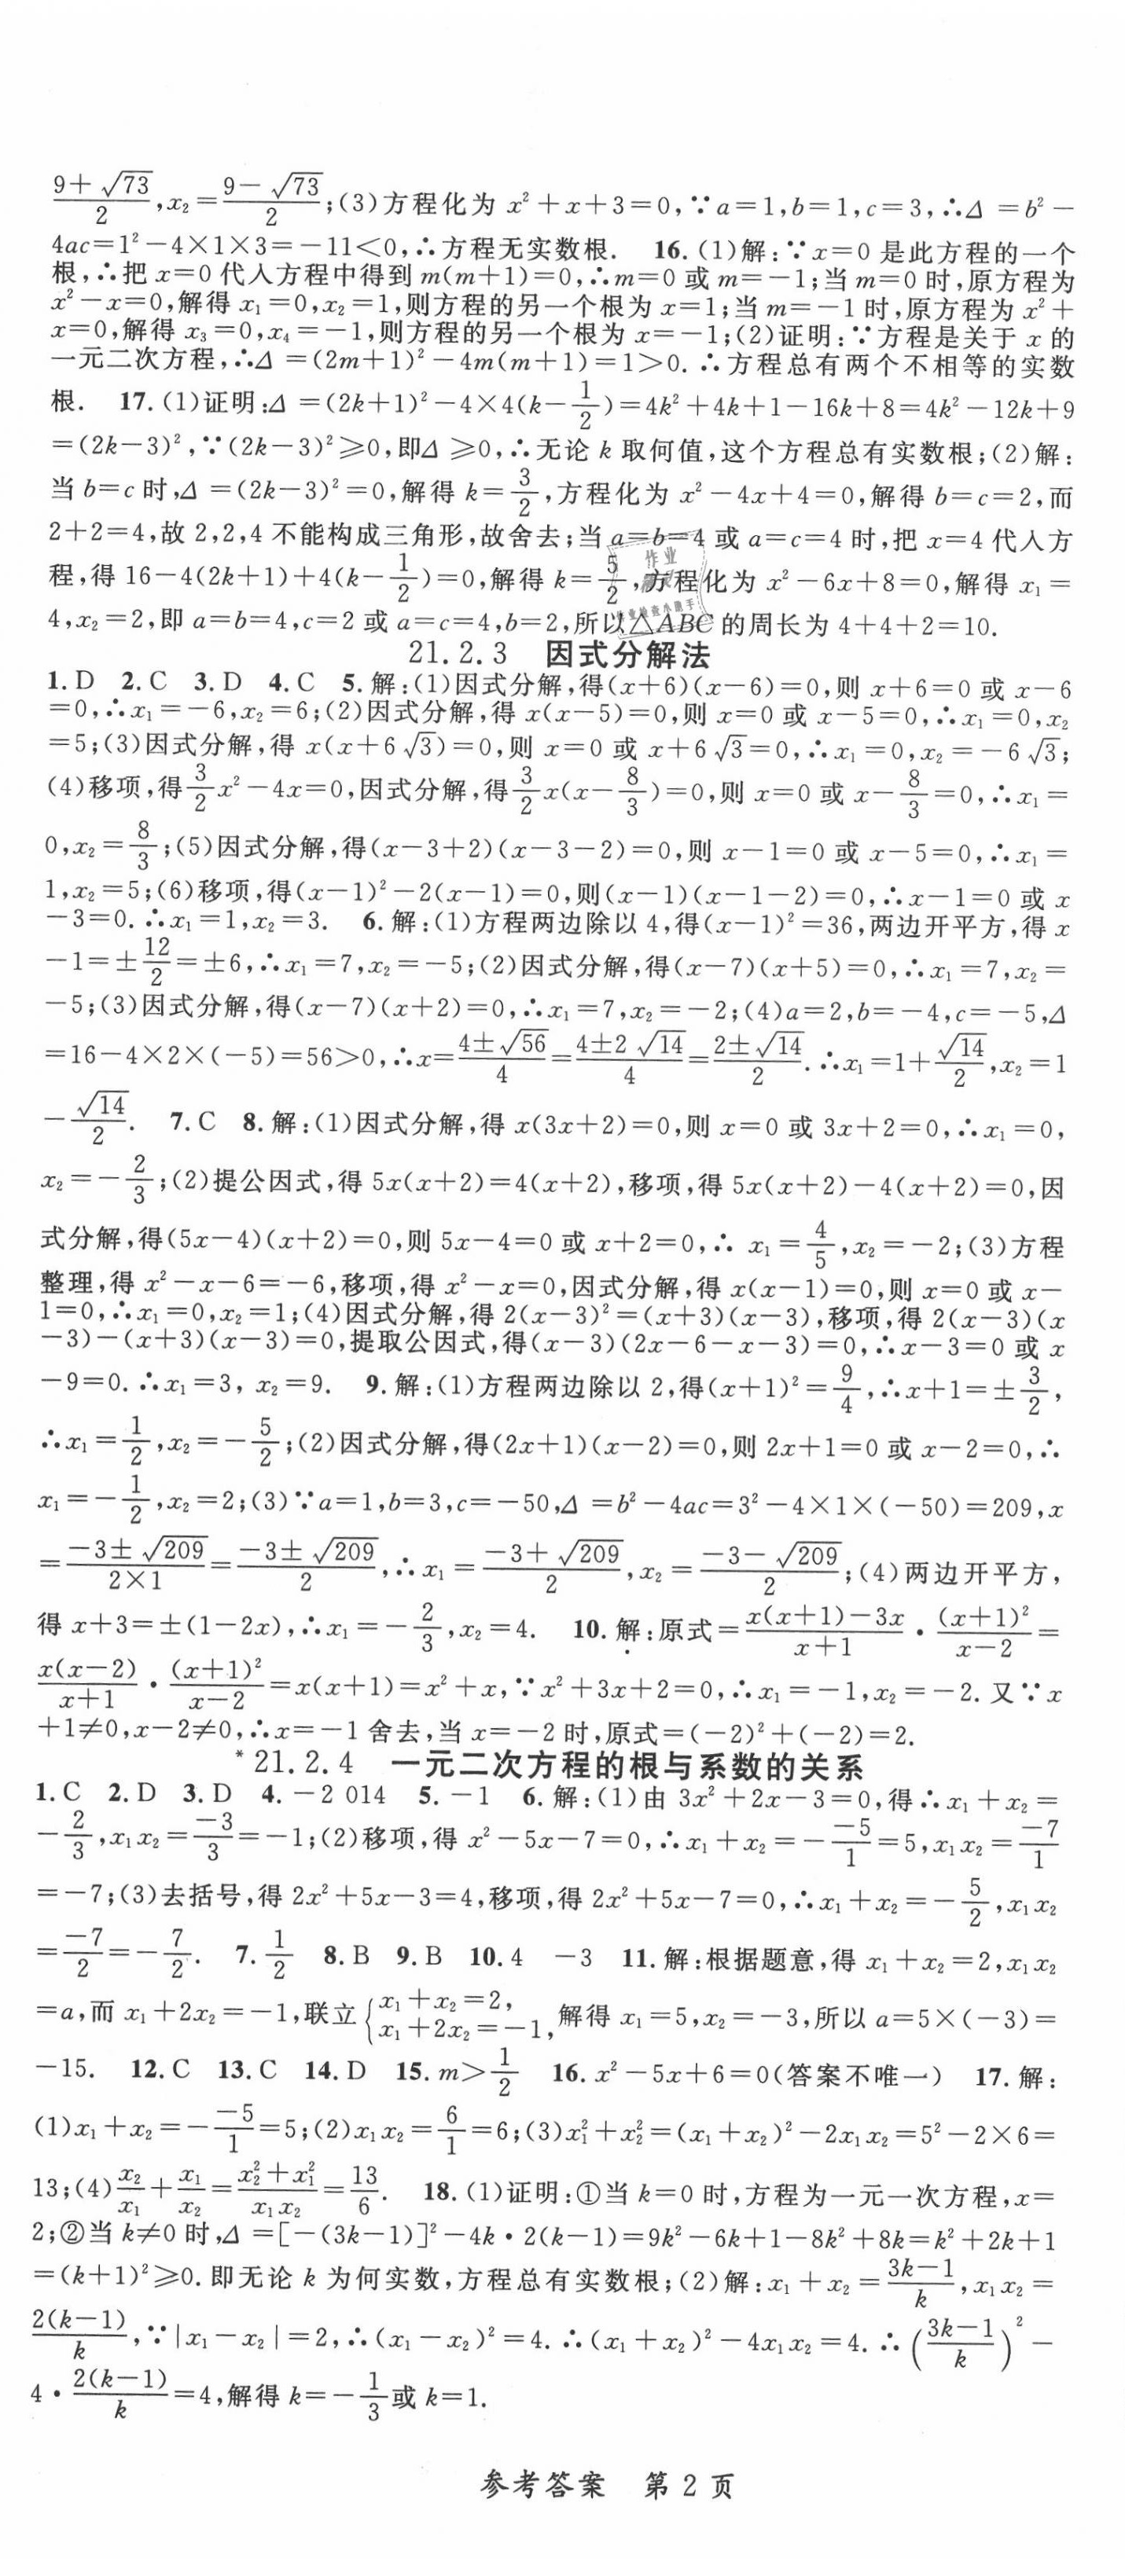 (9+√73)/2,x₂=(9-√73)/2;(3)方程化为 x²+x+3=0,∵a=1,b=1,c=3,∴Δ=b²-
4ac=1²-4×1×3=-11<0,∴方程无实数根. 16.(1)解:∵x=0 是此方程的一个
根,∴把 x=0 代入方程中得到 m(m+1)=0,∴m=0 或 m=-1;当 m=0 时,原方程为
x²-x=0,解得 x₁=0,x₂=1,则方程的另一个根为 x=1;当 m=-1 时,原方程为 x²+
x=0,解得 x₃=0,x₄=-1,则方程的另一个根为 x=-1;(2)证明:∵方程是关于 x 的
一元二次方程,∴Δ=(2m+1)²-4m(m+1)=1>0.∴方程总有两个不相等的实数
根. 17.(1)证明:Δ=(2k+1)²-4×4(k-1/2)=4k²+4k+1-16k+8=4k²-12k+9
=(2k-3)²,∵(2k-3)²≥0,即Δ≥0,∴无论 k 取何值,这个方程总有实数根;(2)解:
当 b=c 时,Δ=(2k-3)²=0,解得 k=3/2,方程化为 x²-4x+4=0,解得 b=c=2,而
2+2=4,故 2,2,4 不能构成三角形,故舍去;当 a=b=4 或 a=c=4 时,把 x=4 代入方
程,得 16-4(2k+1)+4(k-1/2)=0,解得 k=5/2,方程化为 x²-6x+8=0,解得 x₁=
4,x₂=2,即 a=b=4,c=2 或 a=c=4,b=2,所以△ABC 的周长为 4+4+2=10.
21.2.3 因式分解法
1.D 2.C 3.D 4.C 5.解:(1)因式分解,得(x+6)(x-6)=0,则 x+6=0 或 x-6
=0,∴x₁=-6,x₂=6;(2)因式分解,得 x(x-5)=0,则 x=0 或 x-5=0,∴x₁=0,x₂
=5;(3)因式分解,得 x(x+6√3)=0,则 x=0 或 x+6√3=0,∴x₁=0,x₂=-6√3;
(4)移项,得3/2x²-4x=0,因式分解,得3/2x(x-8/3)=0,则 x=0 或 x-8/3=0,∴x₁=
0,x₂=8/3;(5)因式分解,得(x-3+2)(x-3-2)=0,则 x-1=0 或 x-5=0,∴x₁=
1,x₂=5;(6)移项,得(x-1)²-2(x-1)=0,则(x-1)(x-1-2)=0,∴x-1=0 或 x
-3=0.∴x₁=1,x₂=3. 6.解:(1)方程两边除以 4,得(x-1)²=36,两边开平方,得 x
-1=±12/2=±6,∴x₁=7,x₂=-5;(2)因式分解,得(x-7)(x+5)=0,∴x₁=7,x₂=
-5;(3)因式分解,得(x-7)(x+2)=0,∴x₁=7,x₂=-2;(4)a=2,b=-4,c=-5,Δ
=16-4×2×(-5)=56>0,∴x=(4±√56)/4=(4±2√14)/4=(2±√14)/2.∴x₁=1+√14/2,x₂=1
-√14/2. 7.C 8.解:(1)因式分解,得 x(3x+2)=0,则 x=0 或 3x+2=0,∴x₁=0,
x₂=-2/3;(2)提公因式,得 5x(x+2)=4(x+2),移项,得 5x(x+2)-4(x+2)=0,因
式分解,得(5x-4)(x+2)=0,则 5x-4=0 或 x+2=0,∴ x₁=4/5,x₂=-2;(3)方程
整理,得 x²-x-6=-6,移项,得 x²-x=0,因式分解,得 x(x-1)=0,则 x=0 或 x-
1=0,∴x₁=0,x₂=1;(4)因式分解,得 2(x-3)²=(x+3)(x-3),移项,得 2(x-3)(x
-3)-(x+3)(x-3)=0,提取公因式,得(x-3)(2x-6-x-3)=0,∴x-3=0 或 x
-9=0.∴x₁=3, x₂=9. 9.解:(1)方程两边除以 2,得(x+1)²=9/4,∴x+1=±3/2,
∴x₁=1/2,x₂=-5/2;(2)因式分解,得(2x+1)(x-2)=0,则 2x+1=0 或 x-2=0,∴
x₁=-1/2,x₂=2;(3)∵a=1,b=3,c=-50,Δ=b²-4ac=3²-4×1×(-50)=209,x
=(-3±√209)/(2×1)=(-3±√209)/2,∴x₁=(-3+√209)/2,x₂=(-3-√209)/2;(4)两边开平方,
得 x+3=±(1-2x),∴x₁=-2/3,x₂=4. 10.解:原式=(x(x+1)-3x)/(x+1)·(x+1)²/(x-2)=
x(x-2)/(x+1)·(x+1)²/(x-2)=x(x+1)=x²+x,∵x²+3x+2=0,∴x₁=-1,x₂=-2.又∵x
+1≠0,x-2≠0,∴x=-1 舍去,当 x=-2 时,原式=(-2)²+(-2)=2.
*21.2.4 一元二次方程的根与系数的关系
1.C 2.D 3.D 4.-2 014 5.-1 6.解:(1)由 3x²+2x-3=0,得∴x₁+x₂=
-2/3,x₁x₂=-3/3=-1;(2)移项,得 x²-5x-7=0,∴x₁+x₂=-(-5)/1=5,x₁x₂=-7/1
=-7;(3)去括号,得 2x²+5x-3=4,移项,得 2x²+5x-7=0,∴x₁+x₂=-5/2,x₁x₂
=(-7)/2=-7/2. 7.1/2 8.B 9.B 10.4 -3 11.解:根据题意,得 x₁+x₂=2,x₁x₂
=a,而 x₁+2x₂=-1,联立{x₁+x₂=2, x₁+2x₂=-1,解得 x₁=5,x₂=-3,所以 a=5×(-3)=
-15. 12.C 13.C 14.D 15.m>1/2 16.x²-5x+6=0(答案不唯一) 17.解:
(1)x₁+x₂=-(-5)/1=5;(2)x₁x₂=6/1=6;(3)x₁²+x₂²=(x₁+x₂)²-2x₁x₂=5²-2×6=
13;(4)x₂/x₁+x₁/x₂=(x₂²+x₁²)/(x₁x₂)=13/6. 18.(1)证明:①当 k=0 时,方程为一元一次方程,x=
2;②当 k≠0 时,Δ=[-(3k-1)]²-4k·2(k-1)=9k²-6k+1-8k²+8k=k²+2k+1
=(k+1)²≥0.即无论 k 为何实数,方程总有实数根;(2)解:x₁+x₂=(3k-1)/k,x₁x₂=
2(k-1)/k,∵|x₁-x₂|=2,∴(x₁-x₂)²=4.∴(x₁+x₂)²-4x₁x₂=4.∴((3k-1)/k)²-
4·2(k-1)/k=4,解得 k=-1/3或 k=1.
参考答案 第 2 页